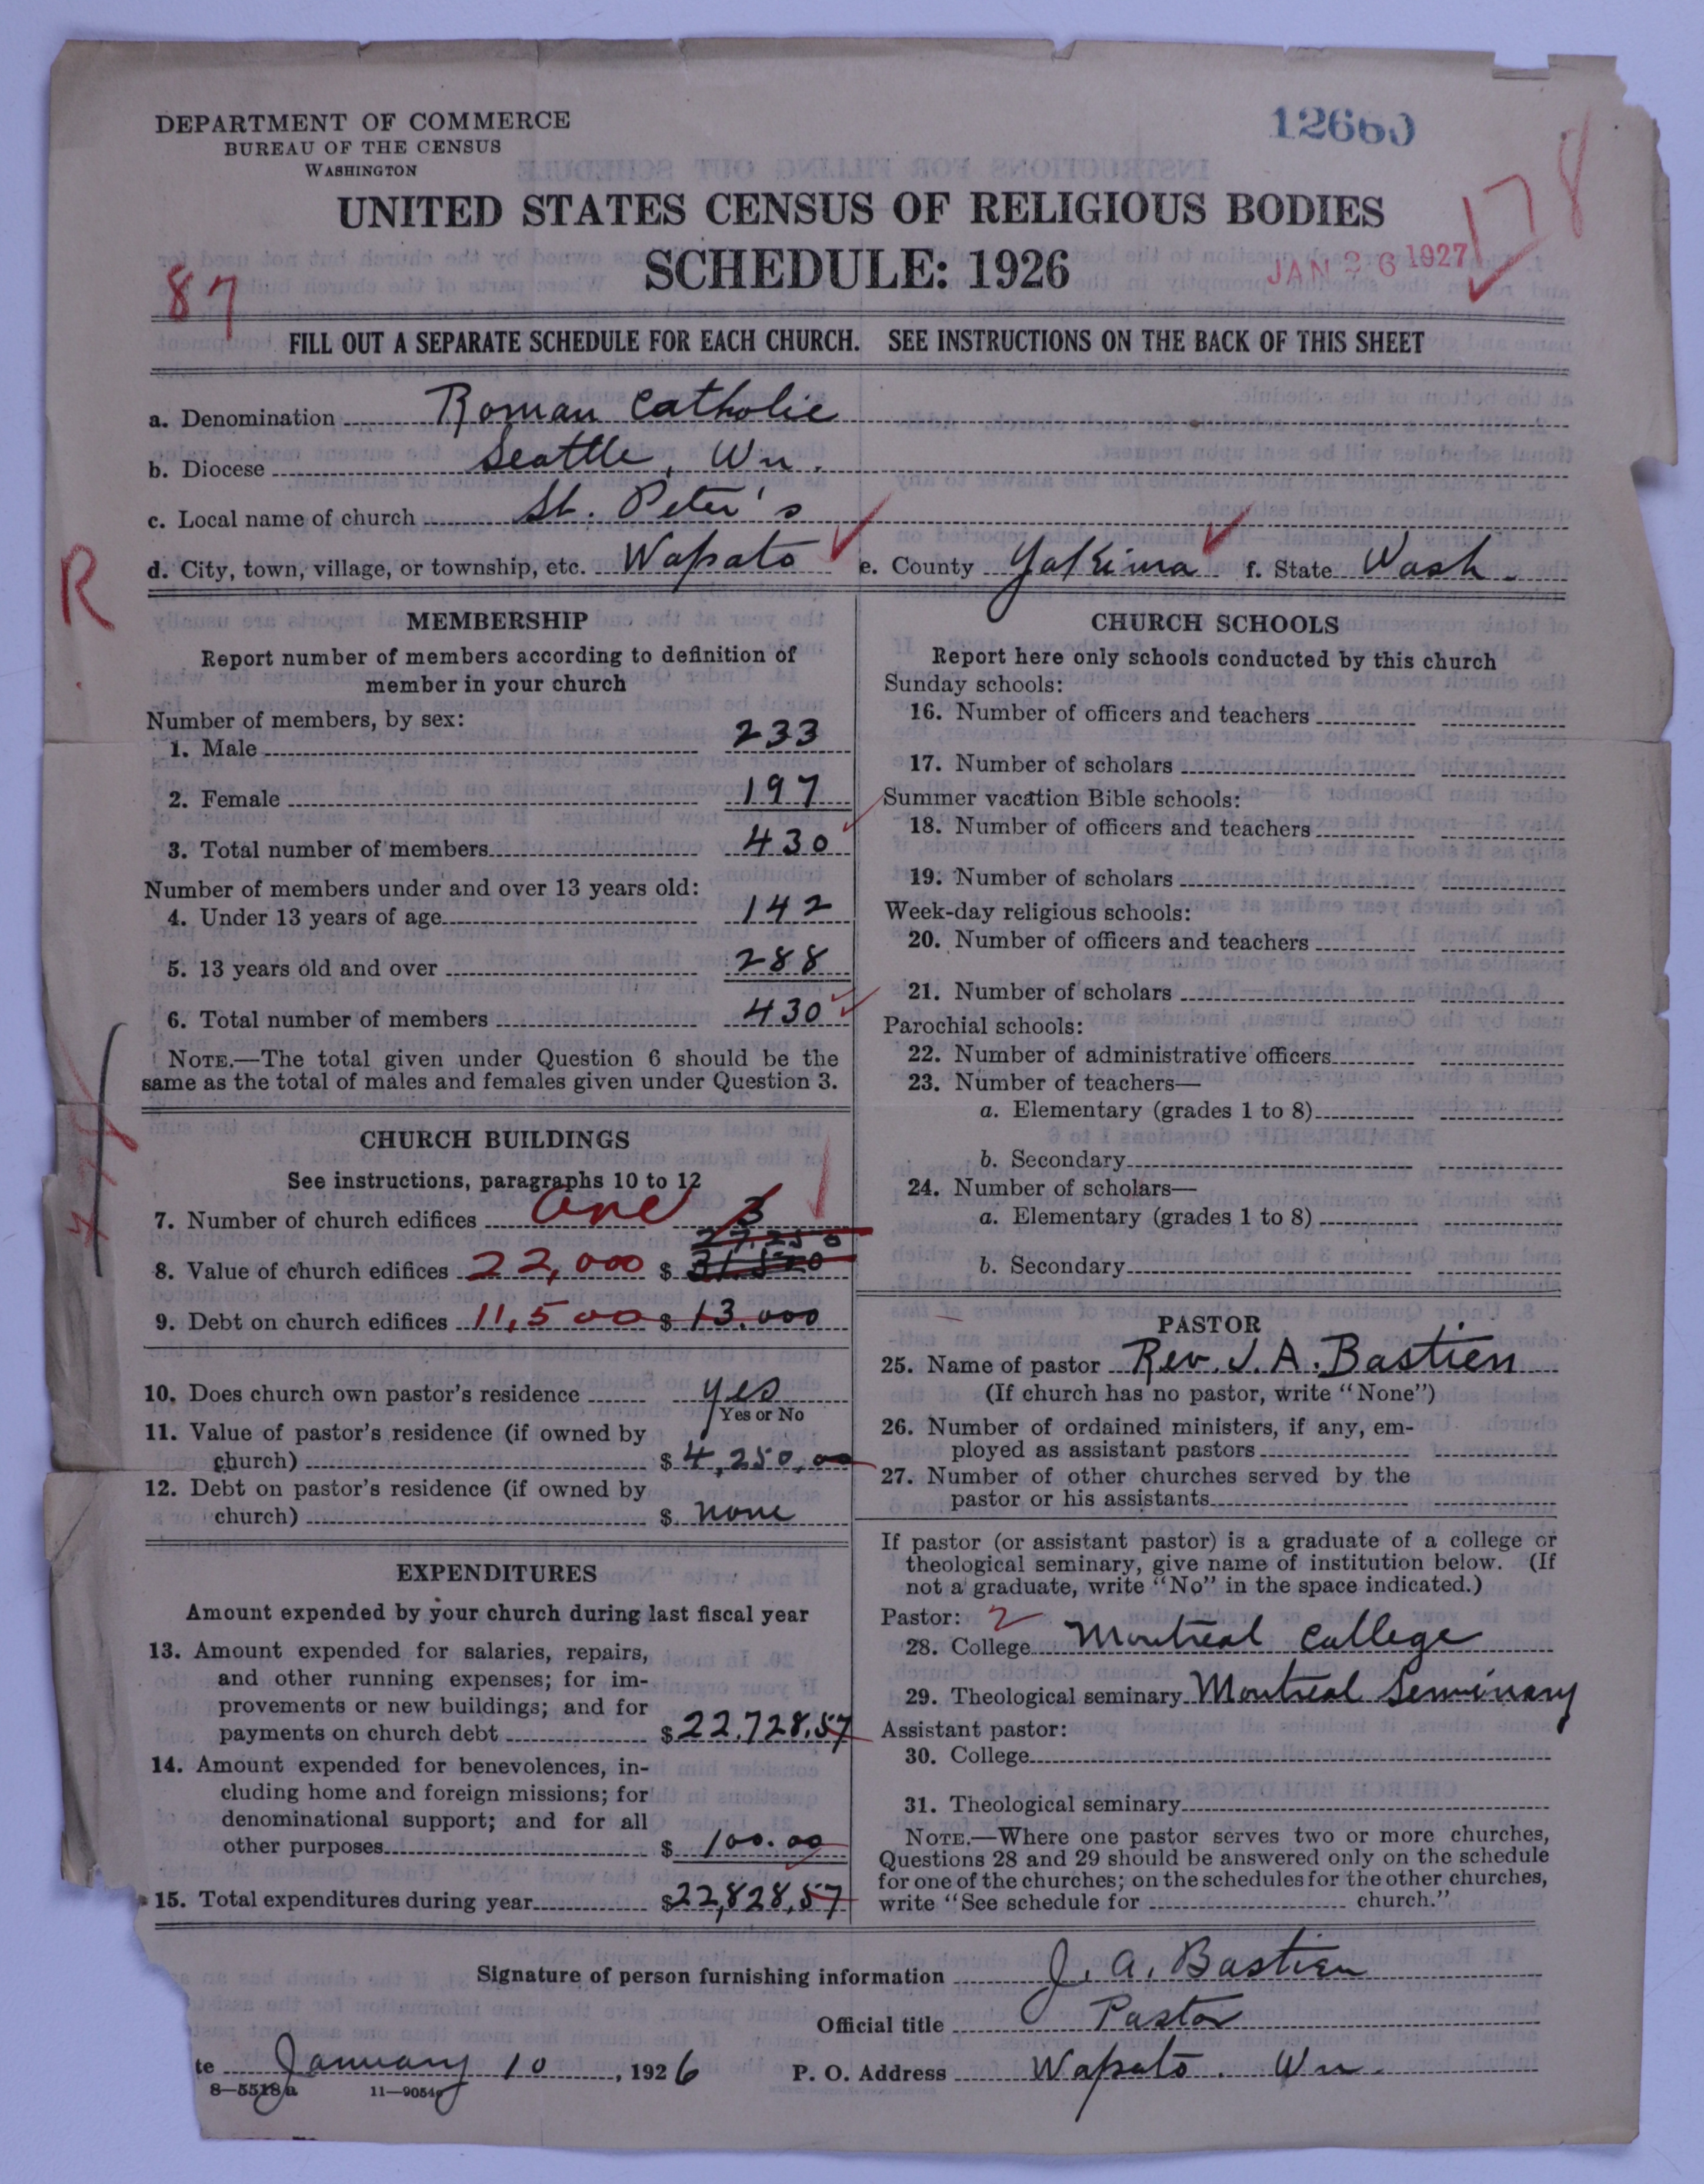 DEPARTMENT OF COMMERCE
BUREAU OF THE CENSUS
WASHINGTON
12660
178
UNITED STATES CENSUS OF RELIGIOUS BODIES
SCHEDULE: 1926
JAN 26 1927
87
FILL OUT A SEPARATE SCHEDULE FOR EACH CHURCH. SEE INSTRUCTIONS ON THE BACK OF THIS SHEET
a. Denomination Roman Catholic
b. Diocese Seattle, Wn.
c. Local name of church St. Peter's
d. City, town, village, or township, etc. Wapato e. County Yakima f. State Wash.
R
MEMBERSHIP
Report number of members according to definition of
member in your church
Number of members, by sex:
1. Male 233
2. Female 197
3. Total number of members 430
Number of members under and over 13 years old:
4. Under 13 years of age 142
5. 13 years old and over 288
6. Total number of members 430
NOTE.—The total given under Question 6 should be the
same as the total of males and females given under Question 3.
CHURCH BUILDINGS
See instructions, paragraphs 10 to 12
7. Number of church edifices one 3
27,250
8. Value of church edifices 22,000 $ 31,500
9. Debt on church edifices 11,500 $ 13.000
10. Does church own pastor's residence yes
Yes or No
11. Value of pastor's residence (if owned by
church) $ 4,250.00
12. Debt on pastor's residence (if owned by
church) $ none
EXPENDITURES
Amount expended by your church during last fiscal year
13. Amount expended for salaries, repairs,
and other running expenses; for im-
provements or new buildings; and for
payments on church debt $ 22.728.57
14. Amount expended for benevolences, in-
cluding home and foreign missions; for
denominational support; and for all
other purposes $ 100.00
15. Total expenditures during year $ 22,828.57
CHURCH SCHOOLS
Report here only schools conducted by this church
Sunday schools:
16. Number of officers and teachers
17. Number of scholars
Summer vacation Bible schools:
18. Number of officers and teachers
19. Number of scholars
Week-day religious schools:
20. Number of officers and teachers
21. Number of scholars
Parochial schools:
22. Number of administrative officers
23. Number of teachers—
a. Elementary (grades 1 to 8)
b. Secondary
24. Number of scholars—
a. Elementary (grades 1 to 8)
b. Secondary
PASTOR
25. Name of pastor Rev. J. A. Bastien
(If church has no pastor, write "None")
26. Number of ordained ministers, if any, em-
ployed as assistant pastors
27. Number of other churches served by the
pastor or his assistants
If pastor (or assistant pastor) is a graduate of a college or
theological seminary, give name of institution below. (If
not a graduate, write "No" in the space indicated.)
Pastor: 2
28. College Montreal College
29. Theological seminary Montreal Seminary
Assistant pastor:
30. College
31. Theological seminary
NOTE.—Where one pastor serves two or more churches,
Questions 28 and 29 should be answered only on the schedule
for one of the churches; on the schedules for the other churches,
write "See schedule for church."
Signature of person furnishing information J. A. Bastien
Official title Pastor
te January 10, 1926 P. O. Address Wapato. Wn.
8—5518a 11—9054